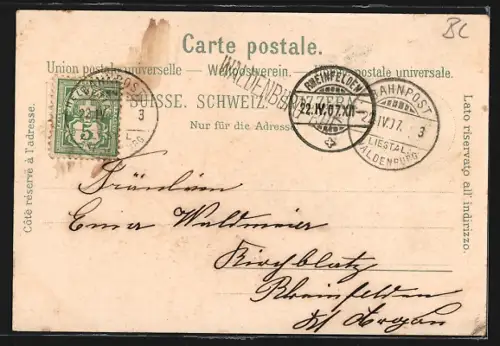 BC
Carte postale.
Union postale universelle – Weltpostverein. – Unione postale universale.
WALDENBURG
SUISSE. SCHWEIZ. SVIZZERA.
Nur für die Adresse
Côté réservé à l'adresse.
Lato riservato all'indirizzo.
5
RHEINFELDEN
22.IV.07.XII
BAHNPOST
IV.07. 3
LIESTAL-
WALDENBURG
3
Fräulein
Emma Waldmeier
Kirchplatz
Rheinfelden
Kt Argau